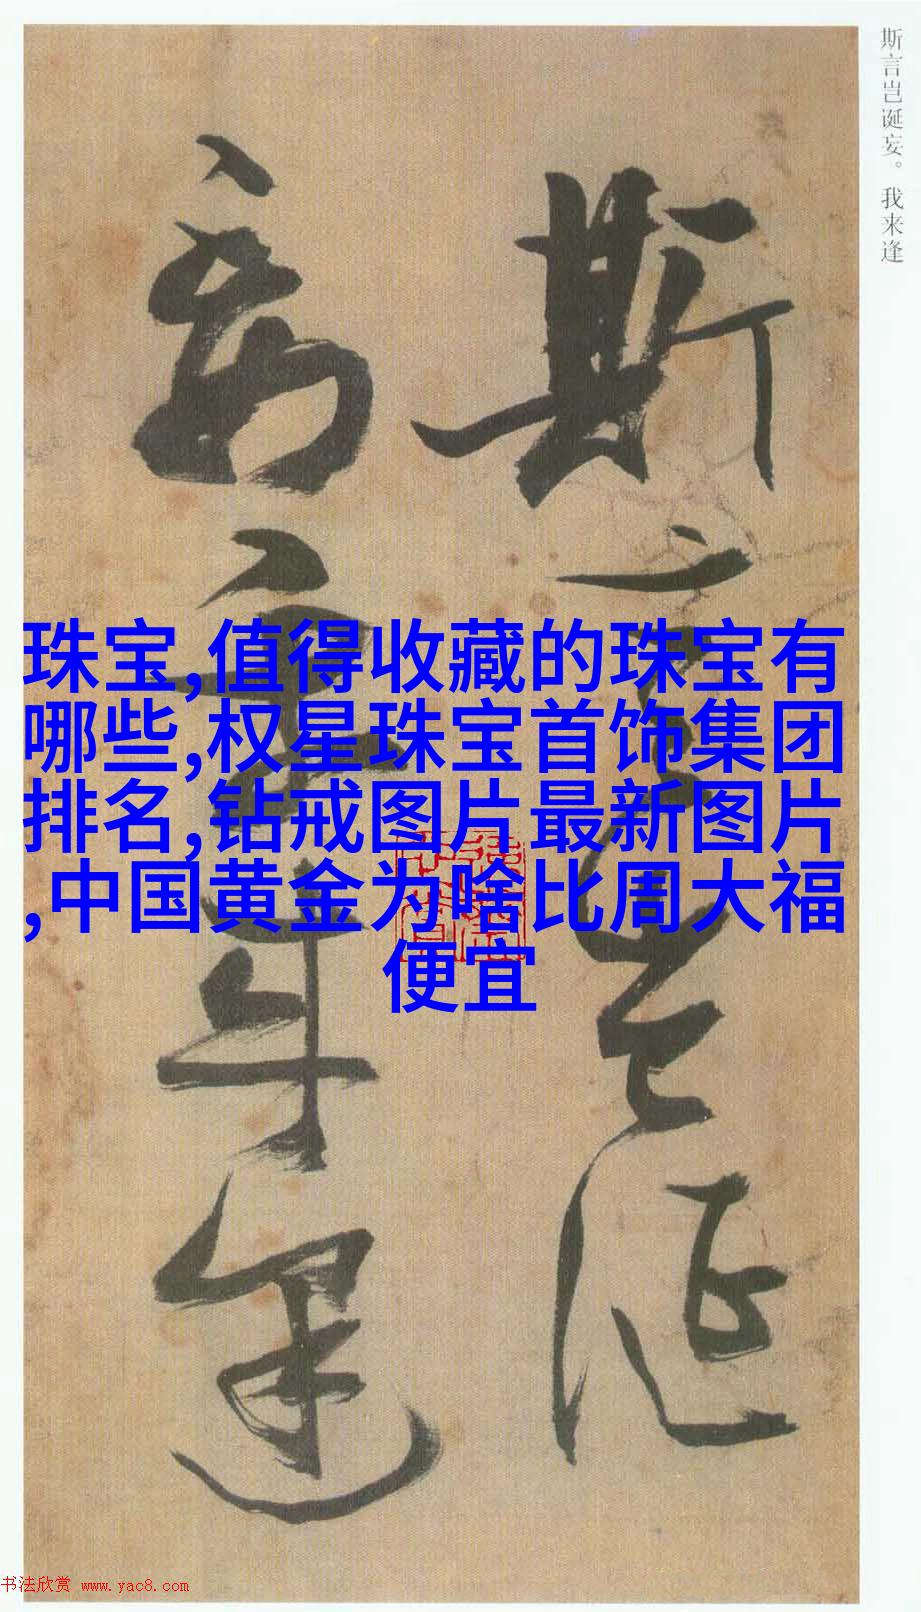 斯言岂诞妄。我来逢
斯言岂诞
妄我来逢
珠宝,值得收藏的珠宝有
哪些,权星珠宝首饰集团
排名,钻戒图片最新图片
,中国黄金为啥比周大福
便宜
书法欣赏 www.yac8.com